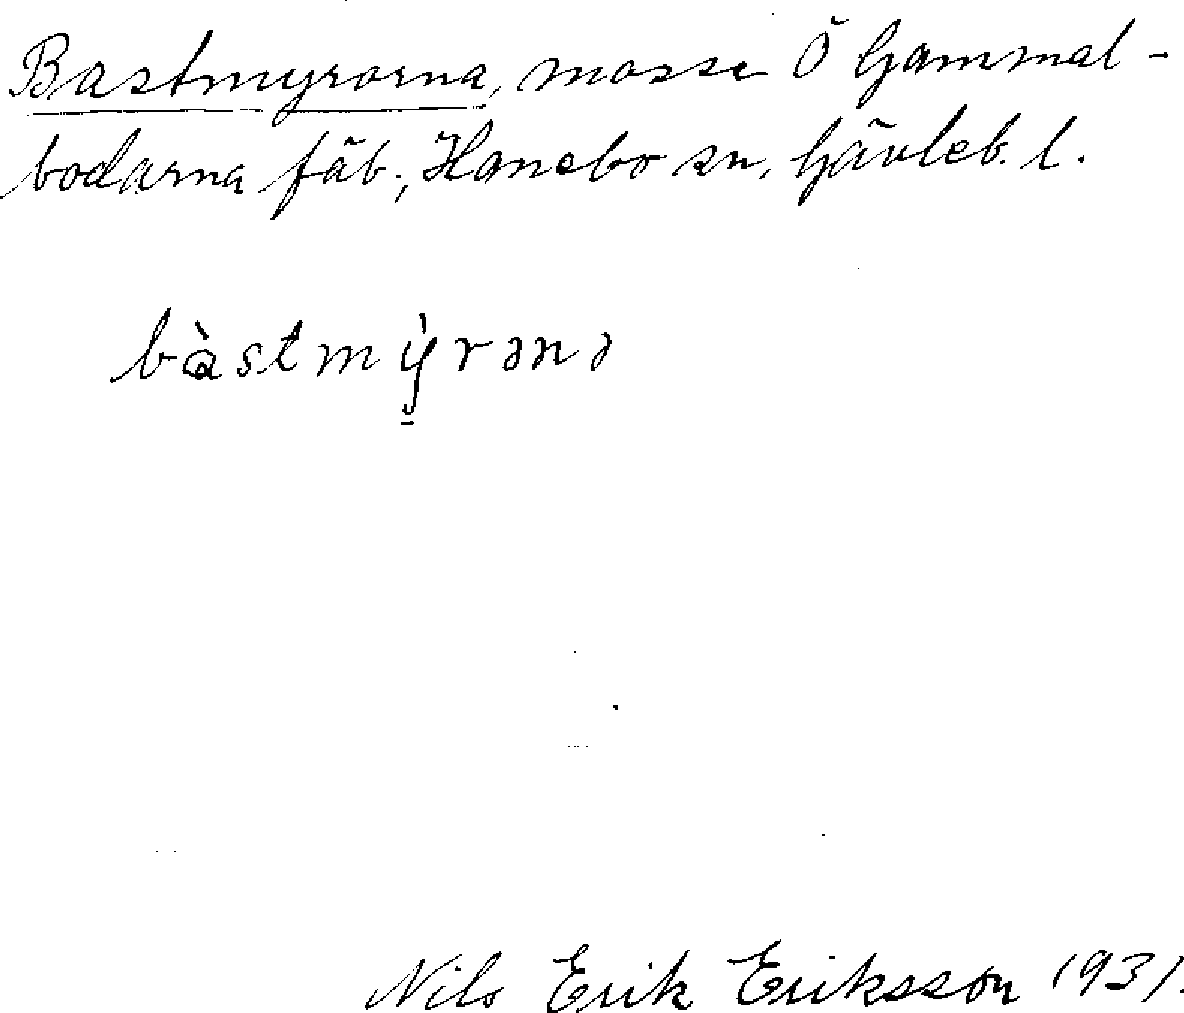 Bastmyrorna, mosse Ö Gammal-
bodarna fäb., Hanebo sn, Gävleb. l.
bὰstmỳ̱rənə
Nils Erik Eriksson 1931.